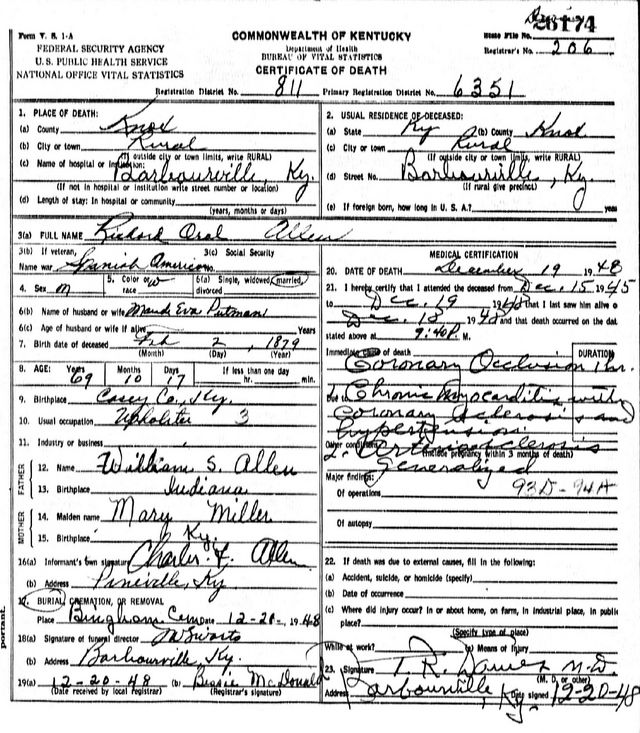 Form V. S. 1-A
COMMONWEALTH OF KENTUCKY
State File No. 26174
FEDERAL SECURITY AGENCY
Department of Health
Registrar's No. 206
U. S. PUBLIC HEALTH SERVICE
BUREAU OF VITAL STATISTICS
NATIONAL OFFICE VITAL STATISTICS
CERTIFICATE OF DEATH
Registration District No. 811 Primary Registration District No. 6351
1. PLACE OF DEATH:
(a) County Knox
(b) City or town Rural
(If outside city or town limits, write RURAL)
(c) Name of hospital or institution: Barbourville, Ky.
(If not in hospital or institution write street number or location)
(d) Length of stay: In hospital or community
(years, months or days)
2. USUAL RESIDENCE OF DECEASED:
(a) State Ky (b) County Knox
(c) City or town Rural
(If outside city or town limits, write RURAL)
(d) Street No. Barbourville, Ky.
(If rural give precinct)
(e) If foreign born, how long in U. S. A.? years
3(a) FULL NAME Richard Oral Allen
3(b) If veteran, 3(c) Social Security
Name war Spanish American No.
4. Sex M 5. Color or race W 6(a) Single, widowed, married, divorced
6(b) Name of husband or wife Maud Eva Putman
6(c) Age of husband or wife if alive Years
7. Birth date of deceased Feb 2, 1879
(Month) (Day) (Year)
8. AGE: Years 69 Months 10 Days 17 If less than one day hr. min.
9. Birthplace Casey Co., Ky.
10. Usual occupation Upholster 3
11. Industry or business
FATHER
12. Name William S. Allen
13. Birthplace Indiana
MOTHER
14. Maiden name Mary Miller
15. Birthplace Ky.
16(a) Informant's own signature Charles F. Allen
(b) Address Pineville, Ky
17. BURIAL, CREMATION, OR REMOVAL
Place Bingham Cem Date 12-20-, 1948
18(a) Signature of funeral director
(b) Address Barbourville, Ky.
19(a) 12-20-48 (b) Bessie McDonald
(Date received by local registrar) (Registrar's signature)
MEDICAL CERTIFICATION
20. DATE OF DEATH December 19 1948
21. I hereby certify that I attended the deceased from Dec. 15 1945
to Dec. 19 1948 that I last saw him alive o
Dec. 18 1948 and that death occurred on the dat
stated above at 9:40 P. M.
DURATION
Immediate cause of death Coronary Occlusion 1 hr.
Due to 1. Chronic Myocarditis with
Coronary Sclerosis and
hypertension
Other conditions 2. Arteriosclerosis
(Include pregnancy within 3 months of death)
Generalized
Major findings:
Of operations 93D-94A
Of autopsy
22. If death was due to external causes, fill in the following:
(a) Accident, suicide, or homicide (specify)
(b) Date of occurrence
(c) Where did injury occur? In or about home, on farm, in industrial place, in public
place?
(Specify type of place)
While at work? (e) Means of Injury
23. Signature T. R. Davies M.D.
(M. D. or other)
Address Barbourville, Ky. Date signed 12-20-48
portant.